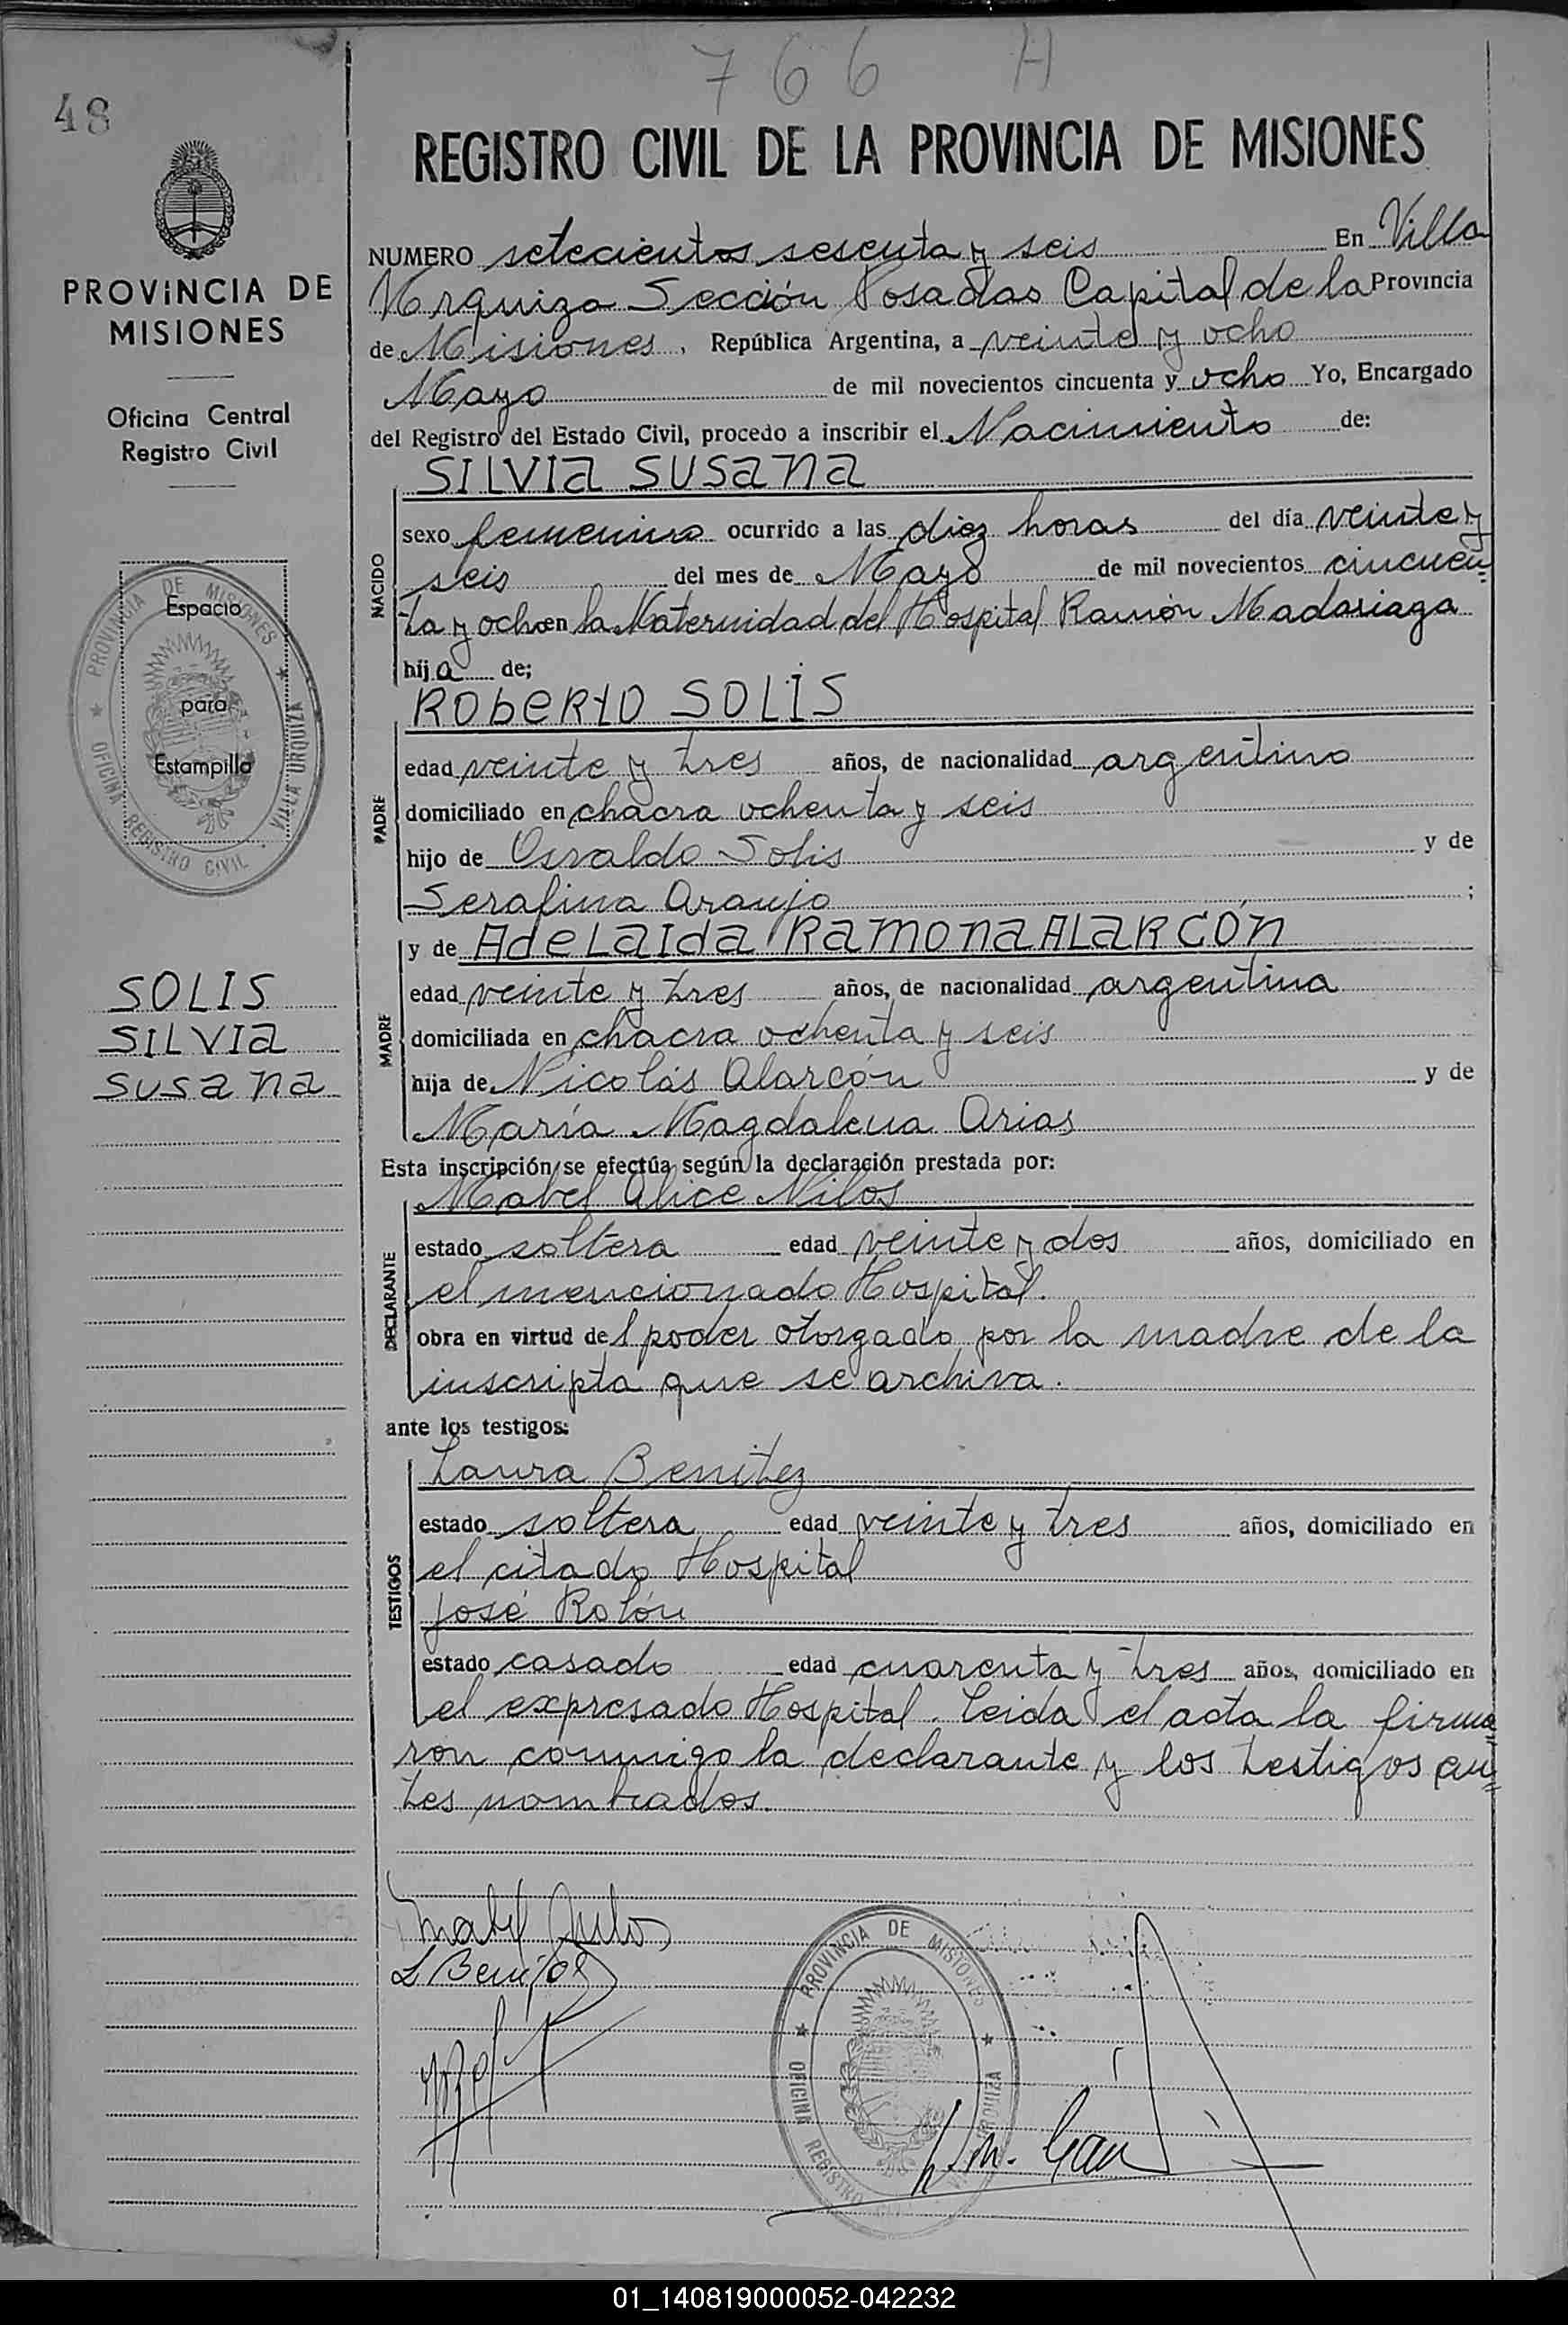 766 H
48
REGISTRO CIVIL DE LA PROVINCIA DE MISIONES
PROVINCIA DE
MISIONES
Oficina Central
Registro Civil
PROVINCIA DE MISIONES
OFICINA REGISTRO CIVIL
VILLA URQUIZA
Espacio
para
Estampilla
SOLIS
SILVIA
SUSANA
NUMERO setecientos sesenta y seis En Villa
Urquiza Sección Posadas Capital de la Provincia
de Misiones, República Argentina, a veinte y ocho
Mayo de mil novecientos cincuenta y ocho Yo, Encargado
del Registro del Estado Civil, procedo a inscribir el Nacimiento de:
SILVIA SUSANA
NACIDO
sexo femenino ocurrido a las diez horas del día veinte y
seis del mes de Mayo de mil novecientos cincuen=
ta y ocho en la Maternidad del Hospital Ramón Madariaga
hija de;
ROBERTO SOLIS
PADRE
edad veinte y tres años, de nacionalidad argentino
domiciliado en chacra ochenta y seis
hijo de Osvaldo Solis y de
Serafina Araujo ;
y de ADELAIDA RAMONA ALARCÓN
MADRE
edad veinte y tres años, de nacionalidad argentina
domiciliada en chacra ochenta y seis
hija de Nicolás Alarcón y de
María Magdalena Arias
Esta inscripción se efectúa según la declaración prestada por:
Mabel Alice Milos
DECLARANTE
estado soltera edad veinte y dos años, domiciliado en
el mencionado Hospital.
obra en virtud del poder otorgado por la madre de la
inscripta que se archiva.
ante los testigos:
Laura Benitez
TESTIGOS
estado soltera edad veinte y tres años, domiciliado en
el citado Hospital
José Rolón
estado casado edad cuarenta y tres años, domiciliado en
el expresado Hospital. Leida el acta la firma=
ron conmigo la declarante y los testigos an=
tes nombrados.
Mabel Milos
L Benitez
PROVINCIA DE MISIONES
OFICINA REGISTRO
URQUIZA
01_140819000052-042232